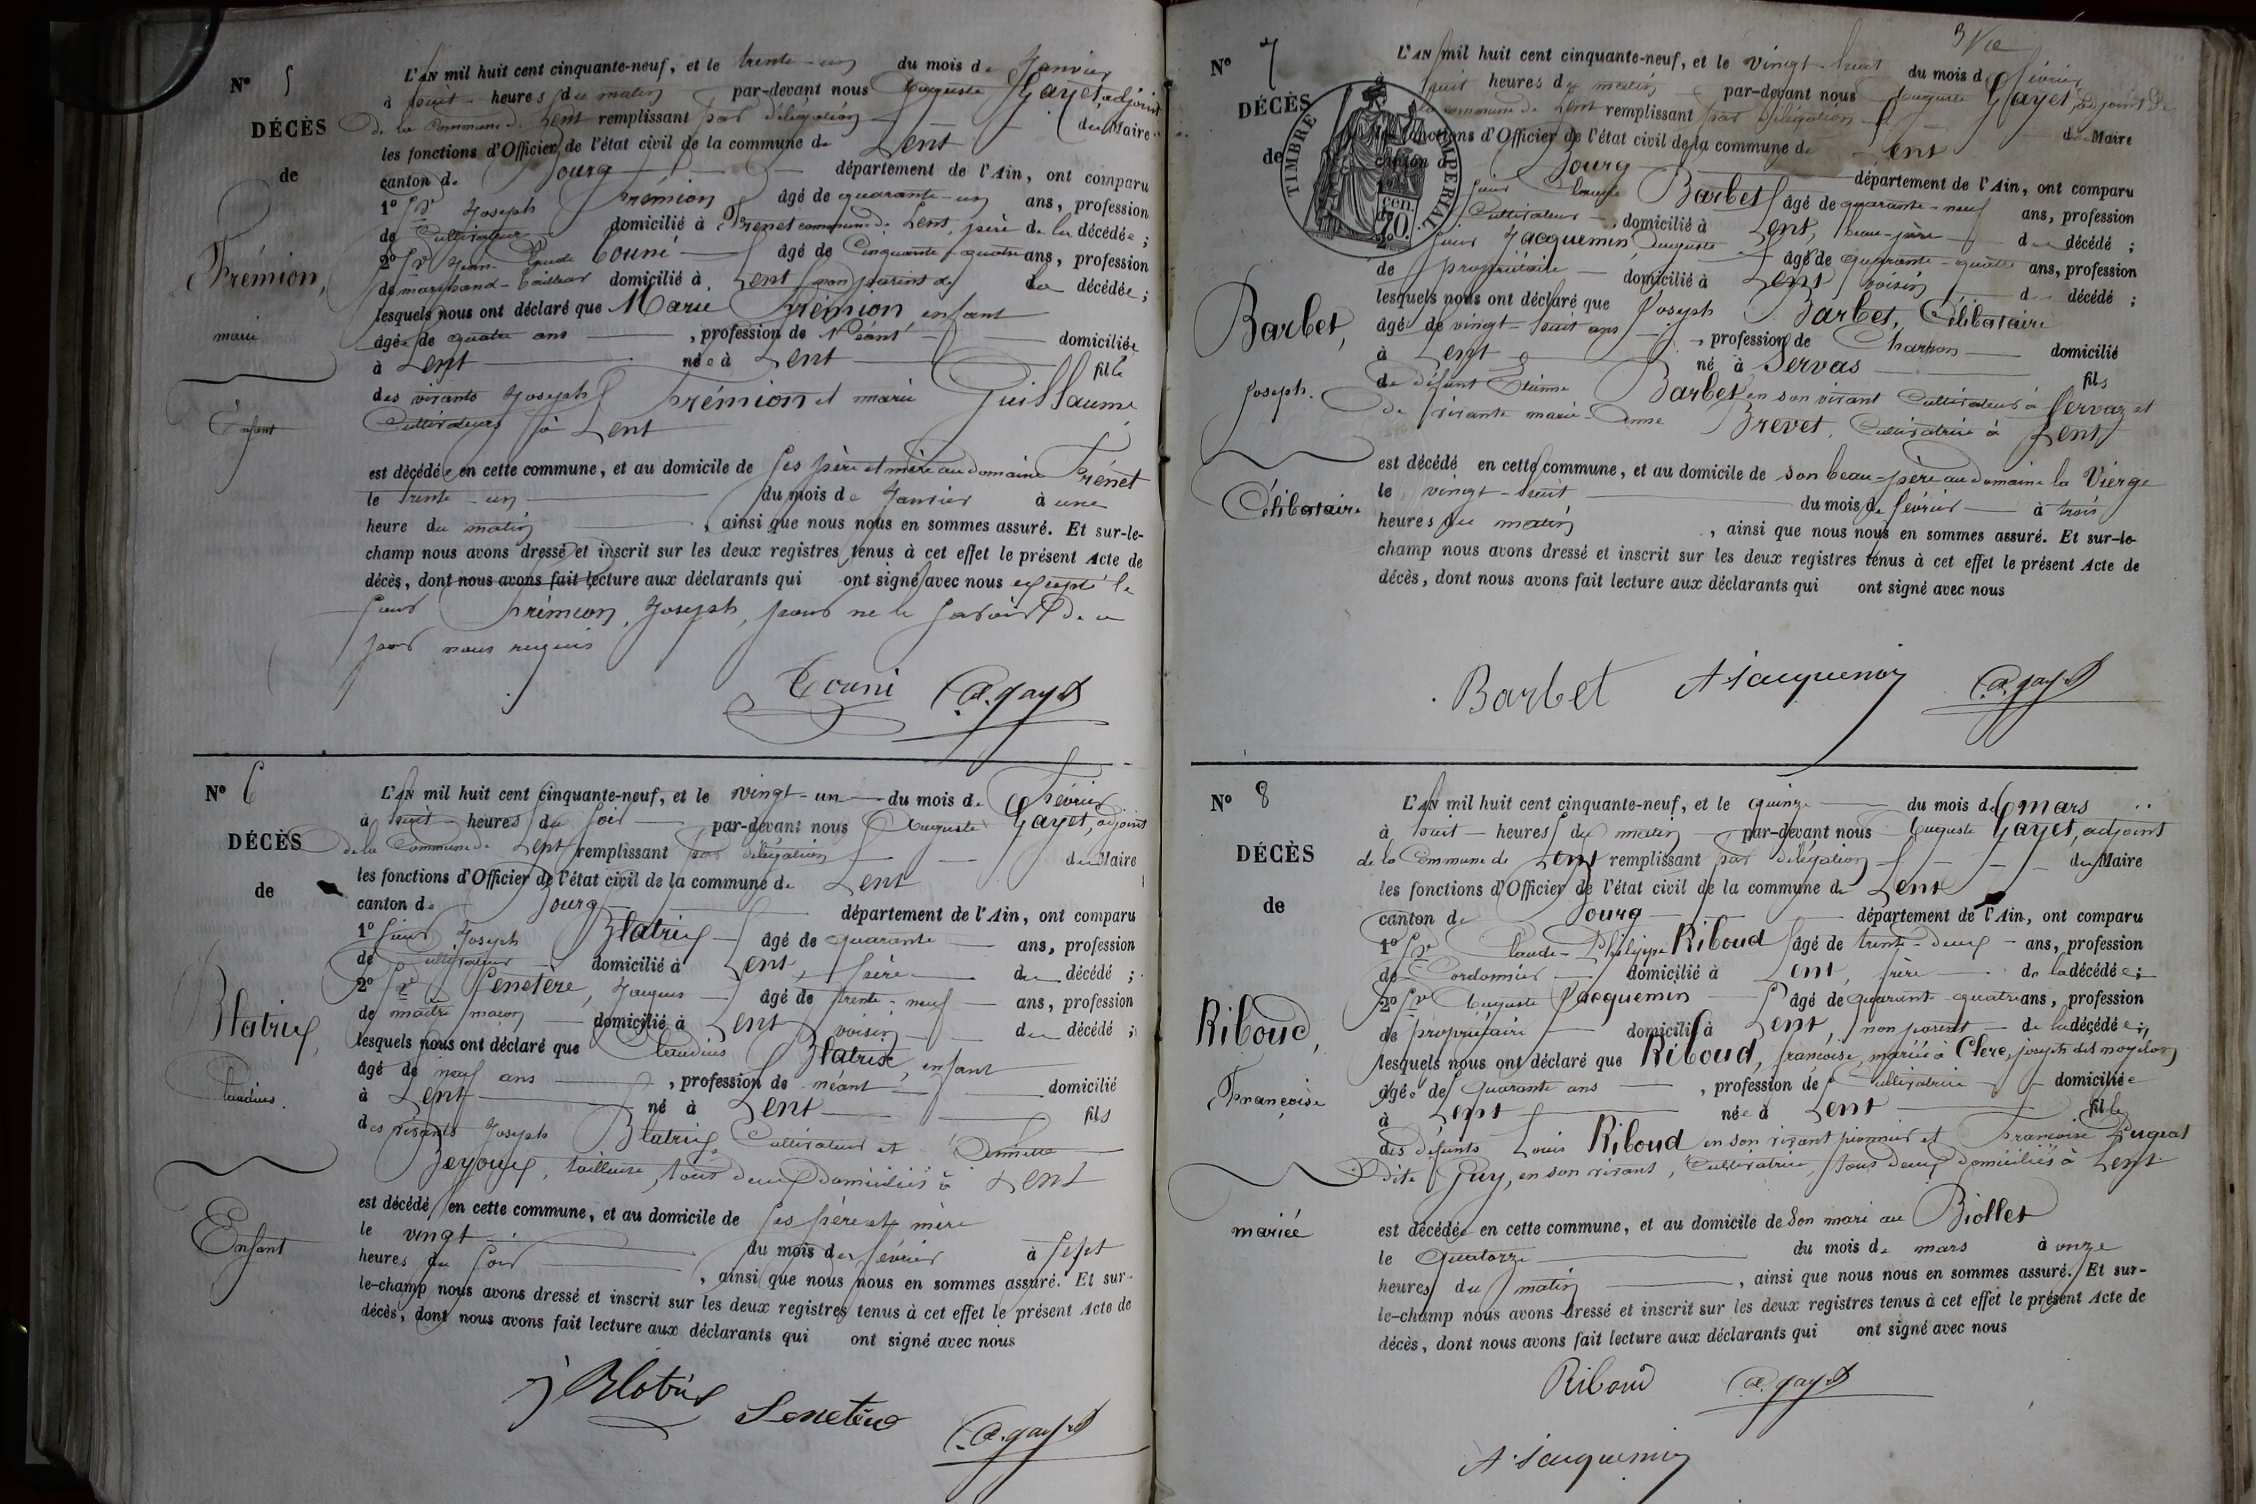 N° 5
DÉCÈS
de
Frémion,
marie
Enfant
L'AN mil huit cent cinquante-neuf, et le trente-un du mois de Janvier
à huit heures du matin par-devant nous Auguste Gayet, adjoint
de la Commune de Lent remplissant par délégation du Maire
les fonctions d'Officier de l'état civil de la commune de Lent
canton de Bourg département de l'Ain, ont comparu
1° Sr Joseph Frémion âgé de quarante-un ans, profession
de Cultivateur domicilié à Frenet commune de Lent, père de la décédée ;
2° Sr Jean Couni âgé de Cinquante-quatre ans, profession
de marchand-tailleur domicilié à Lent non parent de la décédée ;
lesquels nous ont déclaré que Marie Frémion enfant
âgée de quatre ans , profession de Néant domiciliée
à Lent née à Lent fille
des vivants Joseph Frémion et marie Guillaume
Cultivateurs à Lent
est décédée en cette commune, et au domicile de ses père et mère au domaine Frénet
le trente-un du mois de Janvier à une
heure du matin , ainsi que nous nous en sommes assuré. Et sur-le-
champ nous avons dressé et inscrit sur les deux registres tenus à cet effet le présent Acte de
décès, dont nous avons fait lecture aux déclarants qui ont signé avec nous excepté le
Sieur Frémion, Joseph, pour ne le savoir de ce
par nous requis
Couni A. gayet
N° 6
DÉCÈS
de
Blatrix,
Claudius.
Enfant
L'AN mil huit cent cinquante-neuf, et le vingt-un du mois de Février
à huit heures du soir par-devant nous Auguste Gayet, adjoint
de la Commune de Lent remplissant par délégation du Maire
les fonctions d'Officier de l'état civil de la commune de Lent
canton de Bourg département de l'Ain, ont comparu
1° Sieur Joseph Blatrix âgé de quarante ans, profession
de Cultivateur domicilié à Lent, père du décédé ;
2° Sr Senetère, Jacques âgé de trente-neuf ans, profession
de maître maçon domicilié à Lent voisin du décédé ;
lesquels nous ont déclaré que Claudius Blatrix, enfant
âgé de neuf ans , profession de néant domicilié
à Lent né à Lent fils
des vivants Joseph Blatrix, Cultivateur et
Beyoux, tailleuse, tous deux domiciliés à Lent
est décédé en cette commune, et au domicile de ses père et mère
le vingt du mois de février à sept
heures du soir , ainsi que nous nous en sommes assuré. Et sur-
le-champ nous avons dressé et inscrit sur les deux registres tenus à cet effet le présent Acte de
décès, dont nous avons fait lecture aux déclarants qui ont signé avec nous
J Blatrix Senetère A. gayet
N° 7
DÉCÈS
de
Barbet,
Joseph.
Célibataire
TIMBRE IMPÉRIAL
70 cen.
L'AN mil huit cent cinquante-neuf, et le vingt-huit du mois de février
huit heures du matin par-devant nous Auguste Gayet, adjoint de
la commune de Lent remplissant par délégation du Maire
les fonctions d'Officier de l'état civil de la commune de Lent
canton de Bourg département de l'Ain, ont comparu
Sieur Claude Barbet âgé de quarante-neuf ans, profession
Cultivateur domicilié à Lent, beau-père du décédé ;
2° Sieur Jacquemin Auguste âgé de quarante-quatre ans, profession
de propriétaire domicilié à Lent voisin du décédé ;
lesquels nous ont déclaré que Joseph Barbet, Célibataire
âgé de vingt-huit ans , profession de Charron domicilié
à Lent né à Servas fils
de défunt Etienne Barbet en son vivant Cultivateur à Servaz et
de vivante marie-Anne Brevet, Cultivatrice à Lent
est décédé en cette commune, et au domicile de son beau-père au domaine la Vierge
le vingt-huit du mois de février à trois
heures du matin , ainsi que nous nous en sommes assuré. Et sur-le-
champ nous avons dressé et inscrit sur les deux registres tenus à cet effet le présent Acte de
décès, dont nous avons fait lecture aux déclarants qui ont signé avec nous
Barbet A Jacquemin A. gayet
N° 8
DÉCÈS
de
Riboud,
Françoise
mariée
L'AN mil huit cent cinquante-neuf, et le quinze du mois de mars
à huit heures du matin par-devant nous Auguste Gayet, adjoint
de la Commune de Lent remplissant par délégation du Maire
les fonctions d'Officier de l'état civil de la commune de Lent
canton de Bourg département de l'Ain, ont comparu
1° Sr Claude-Philippe Riboud âgé de trente-deux ans, profession
de Cordonnier domicilié à Lent, frère de la décédée ;
2° Sr Auguste Jacquemin âgé de quarante-quatre ans, profession
de propriétaire domicilié à Lent, non parent de la décédée ;
lesquels nous ont déclaré que Riboud, françoise, mariée à Clere, joseph
âgée de quarante ans , profession de Cultivatrice domiciliée
à Lent née à Lent fille
des défunts Louis Riboud en son vivant pionnier et Françoise Pugeat
dite Guy, en son vivant, Cultivatrice, tous deux domiciliés à Lent.
est décédée en cette commune, et au domicile de son mari au Biollet
le Quatorze du mois de mars à onze
heures du matin , ainsi que nous nous en sommes assuré. Et sur-
le-champ nous avons dressé et inscrit sur les deux registres tenus à cet effet le présent Acte de
décès, dont nous avons fait lecture aux déclarants qui ont signé avec nous
Riboud A. gayet
A Jacquemin